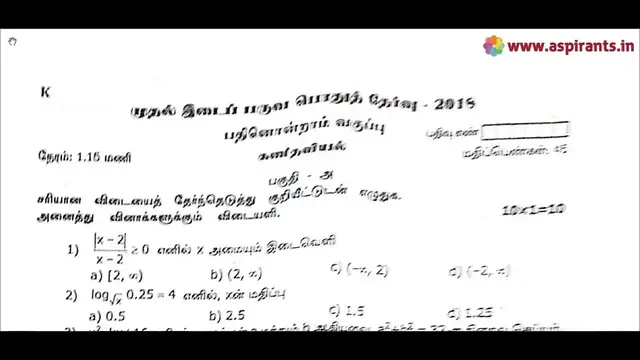 www.aspirants.in
K
முதல் இடைப் பருவ பொதுத் தேர்வு - 2018
பதினொன்றாம் வகுப்பு
பதிவு எண்
கணிதவியல்
நேரம்: 1.15 மணி
மதிப்பெண்கள்: 45
பகுதி - அ
சரியான விடையைத் தேர்ந்தெடுத்து குறியீட்டுடன் எழுதுக.
அனைத்து வினாக்களுக்கும் விடையளி.
10x1=10
1) |x-2| / x-2 ≥ 0 எனில் x அமையும் இடைவெளி
a) [2, ∞) b) (2, ∞) c) (-∞, 2) c) (-2, ∞)
2) log√x 0.25 = 4 எனில், xன் மதிப்பு
a) 0.5 b) 2.5 c) 1.5 d) 1.25